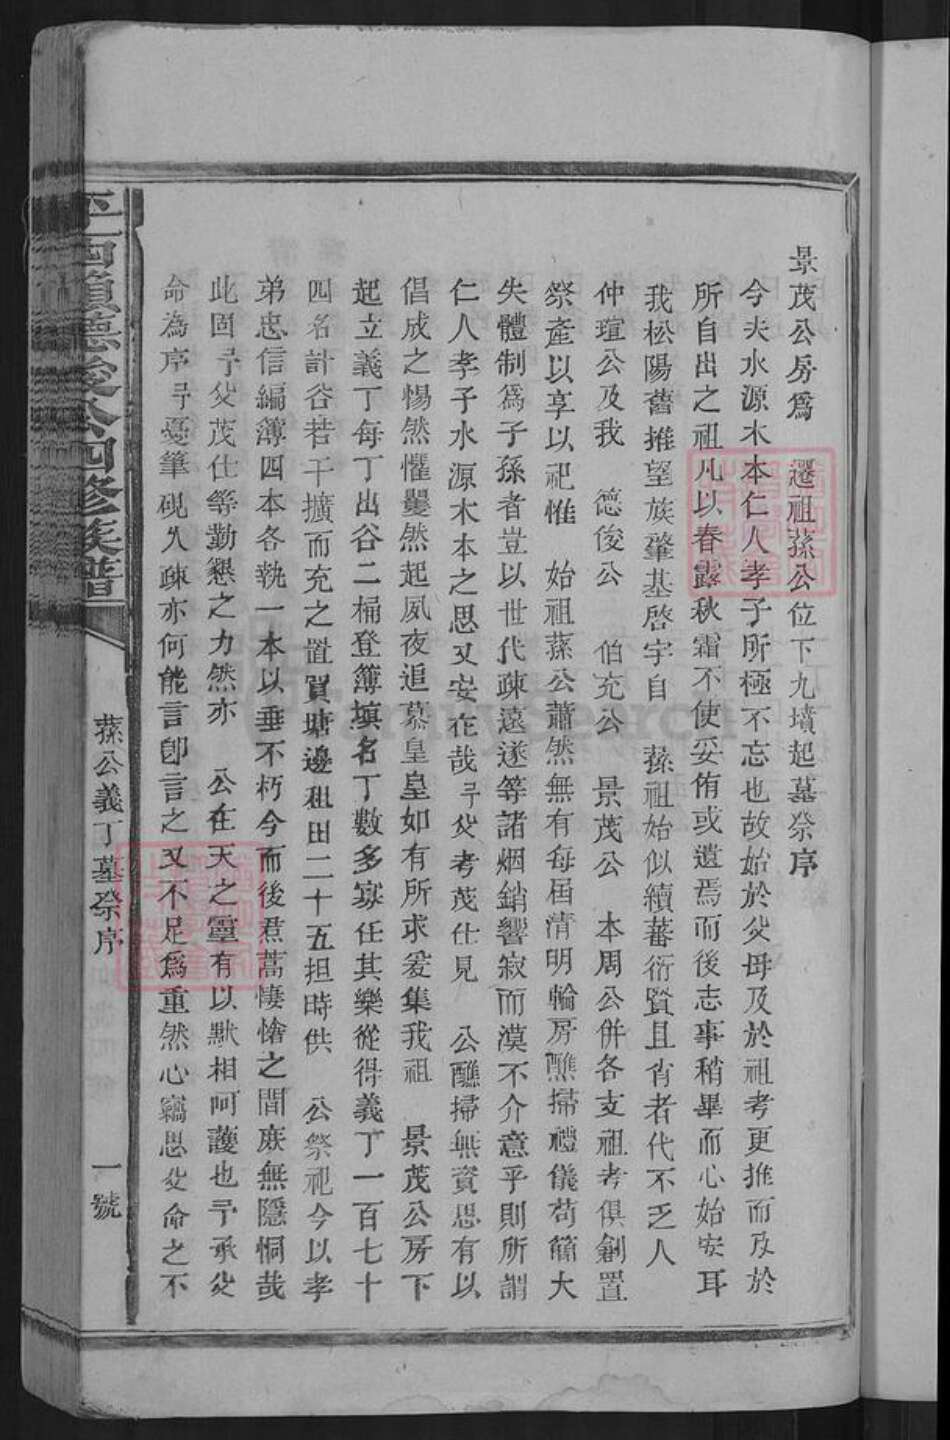 景茂公房爲 遷祖蓀公位下九墳起墓祭序
今夫水源木本仁人孝子所極不忘也故始於父母及於祖考更推而及於
所自出之祖凡以春露秋霜不使妥侑或遺焉而後志事稍畢而心始安耳
我松陽舊推望族肇基啓宇自 蓀祖始似續蕃衍賢且肖者代不乏人
仲瑄公及我 德俊公 伯充公 景茂公 本周公併各支祖考俱創置
祭產以享以祀惟 始祖蓀公蕭然無有每屆清明輪房醮掃禮儀苟簡大
失體制爲子孫者豈以世代疎遠遂等諸烟銷響寂而漠不介意乎則所謂
仁人孝子水源木本之思又安在哉予父考茂仕見 公醮掃無資思有以
倡成之惕然懼矍然起夙夜追慕皇皇如有所求爰集我祖 景茂公房下
起立義丁每丁出谷二桶登簿塡名丁數多寡任其樂從得義丁一百七十
四名計谷若干擴而充之置買塘邊租田二十五担時供 公祭祀今以孝
弟忠信編簿四本各執一本以垂不朽今而後焄蒿悽愴之間庶無隱恫哉
此固予父茂仕等勤懇之力然亦 公在天之靈有以默相呵護也予承父
命為序予憂筆硯久疎亦何能言卽言之又不足爲重然心竊思父命之不
德俊公四修族譜
蓀公義丁墓祭序
一號
FamilySearch